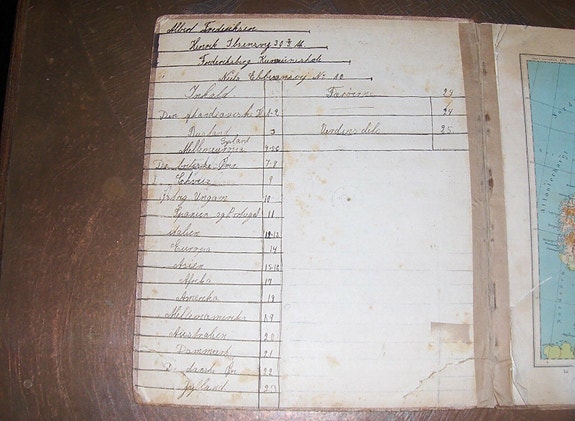 Albert Frederiksen
Henrik Ibsensvej 30
Frederiksberg Kommuneskole
Niels Ebbesensvej No 10
Indhold
Færöerne 23
Den skandinaviske H. 1-2
24
Rusland 3
Verdens del. 25
Mellemeuropa
De britiske Øer 7-8
Schweiz 9
Østrig Ungarn 10
Spanien og Portugal 11
Italien
Europa 14
Asien
Afrika 17
Amerika 18
Mellemamerika 19
Australien 20
Danmark 21
De danske Øer 22
Jylland 23